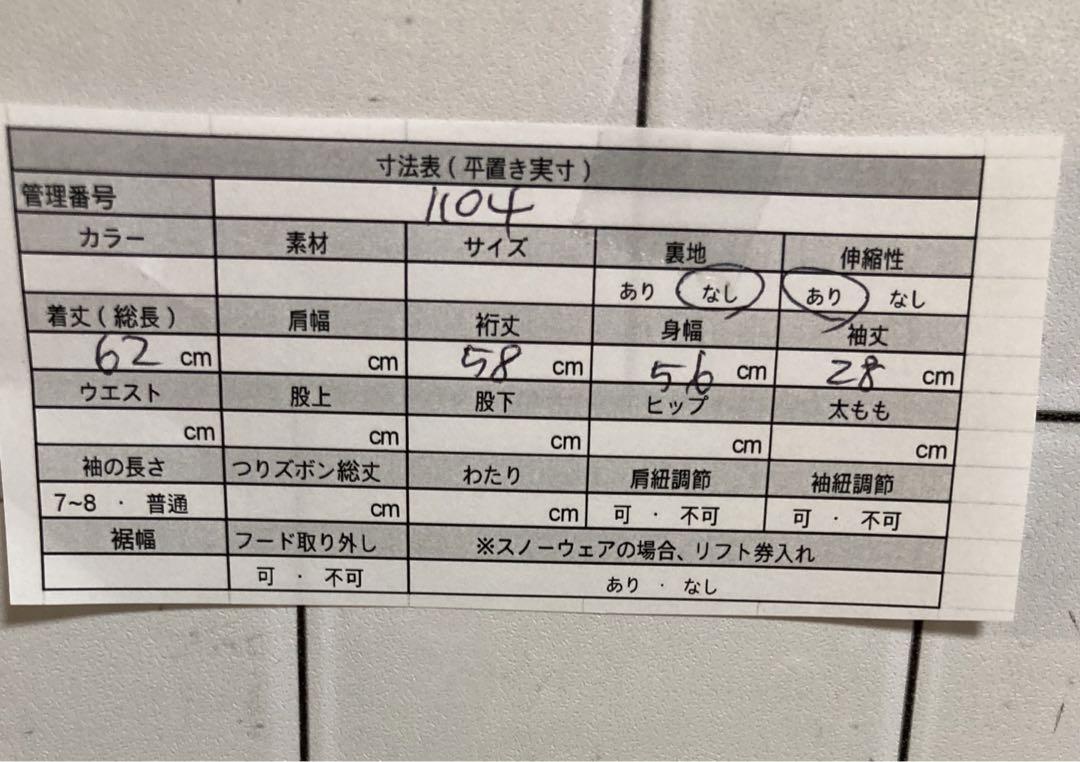 寸法表(平置き実寸)
管理番号 1104
カラー 素材 サイズ 裏地 伸縮性
あり なし あり なし
着丈(総長) 肩幅 裄丈 身幅 袖丈
62 cm cm 58 cm 56 cm 28 cm
ウエスト 股上 股下 ヒップ 太もも
cm cm cm cm cm
袖の長さ つりズボン総丈 わたり 肩紐調節 袖紐調節
7~8 ・ 普通 cm cm 可 ・ 不可 可 ・ 不可
裾幅 フード取り外し ※スノーウェアの場合、リフト券入れ
可 ・ 不可 あり ・ なし